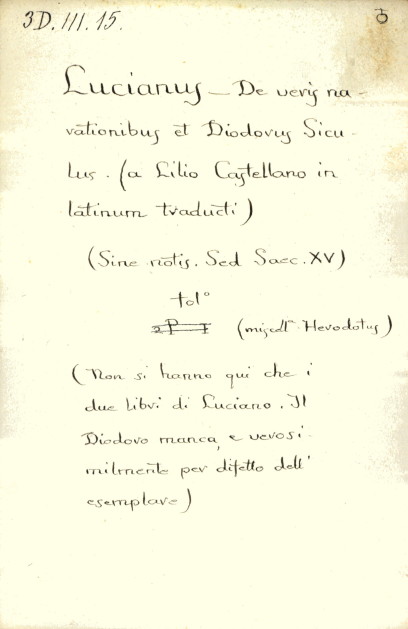 3D. III. 15.
Lucianus – De veris na-
rationibus et Diodorus Sicu-
lus. (a Lilio Castellano in
latinum traducti)
(Sine notis. Sed Saec. XV)
fol°
(miscell Herodotus)
(Non si hanno qui che i
due libri di Luciano. Il
Diodoro manca, e verosi-
milmente per difetto dell'
esemplare)